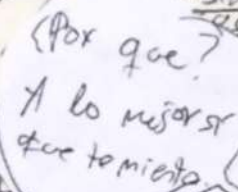 ¿Por que?
A lo mejor si
que te miento